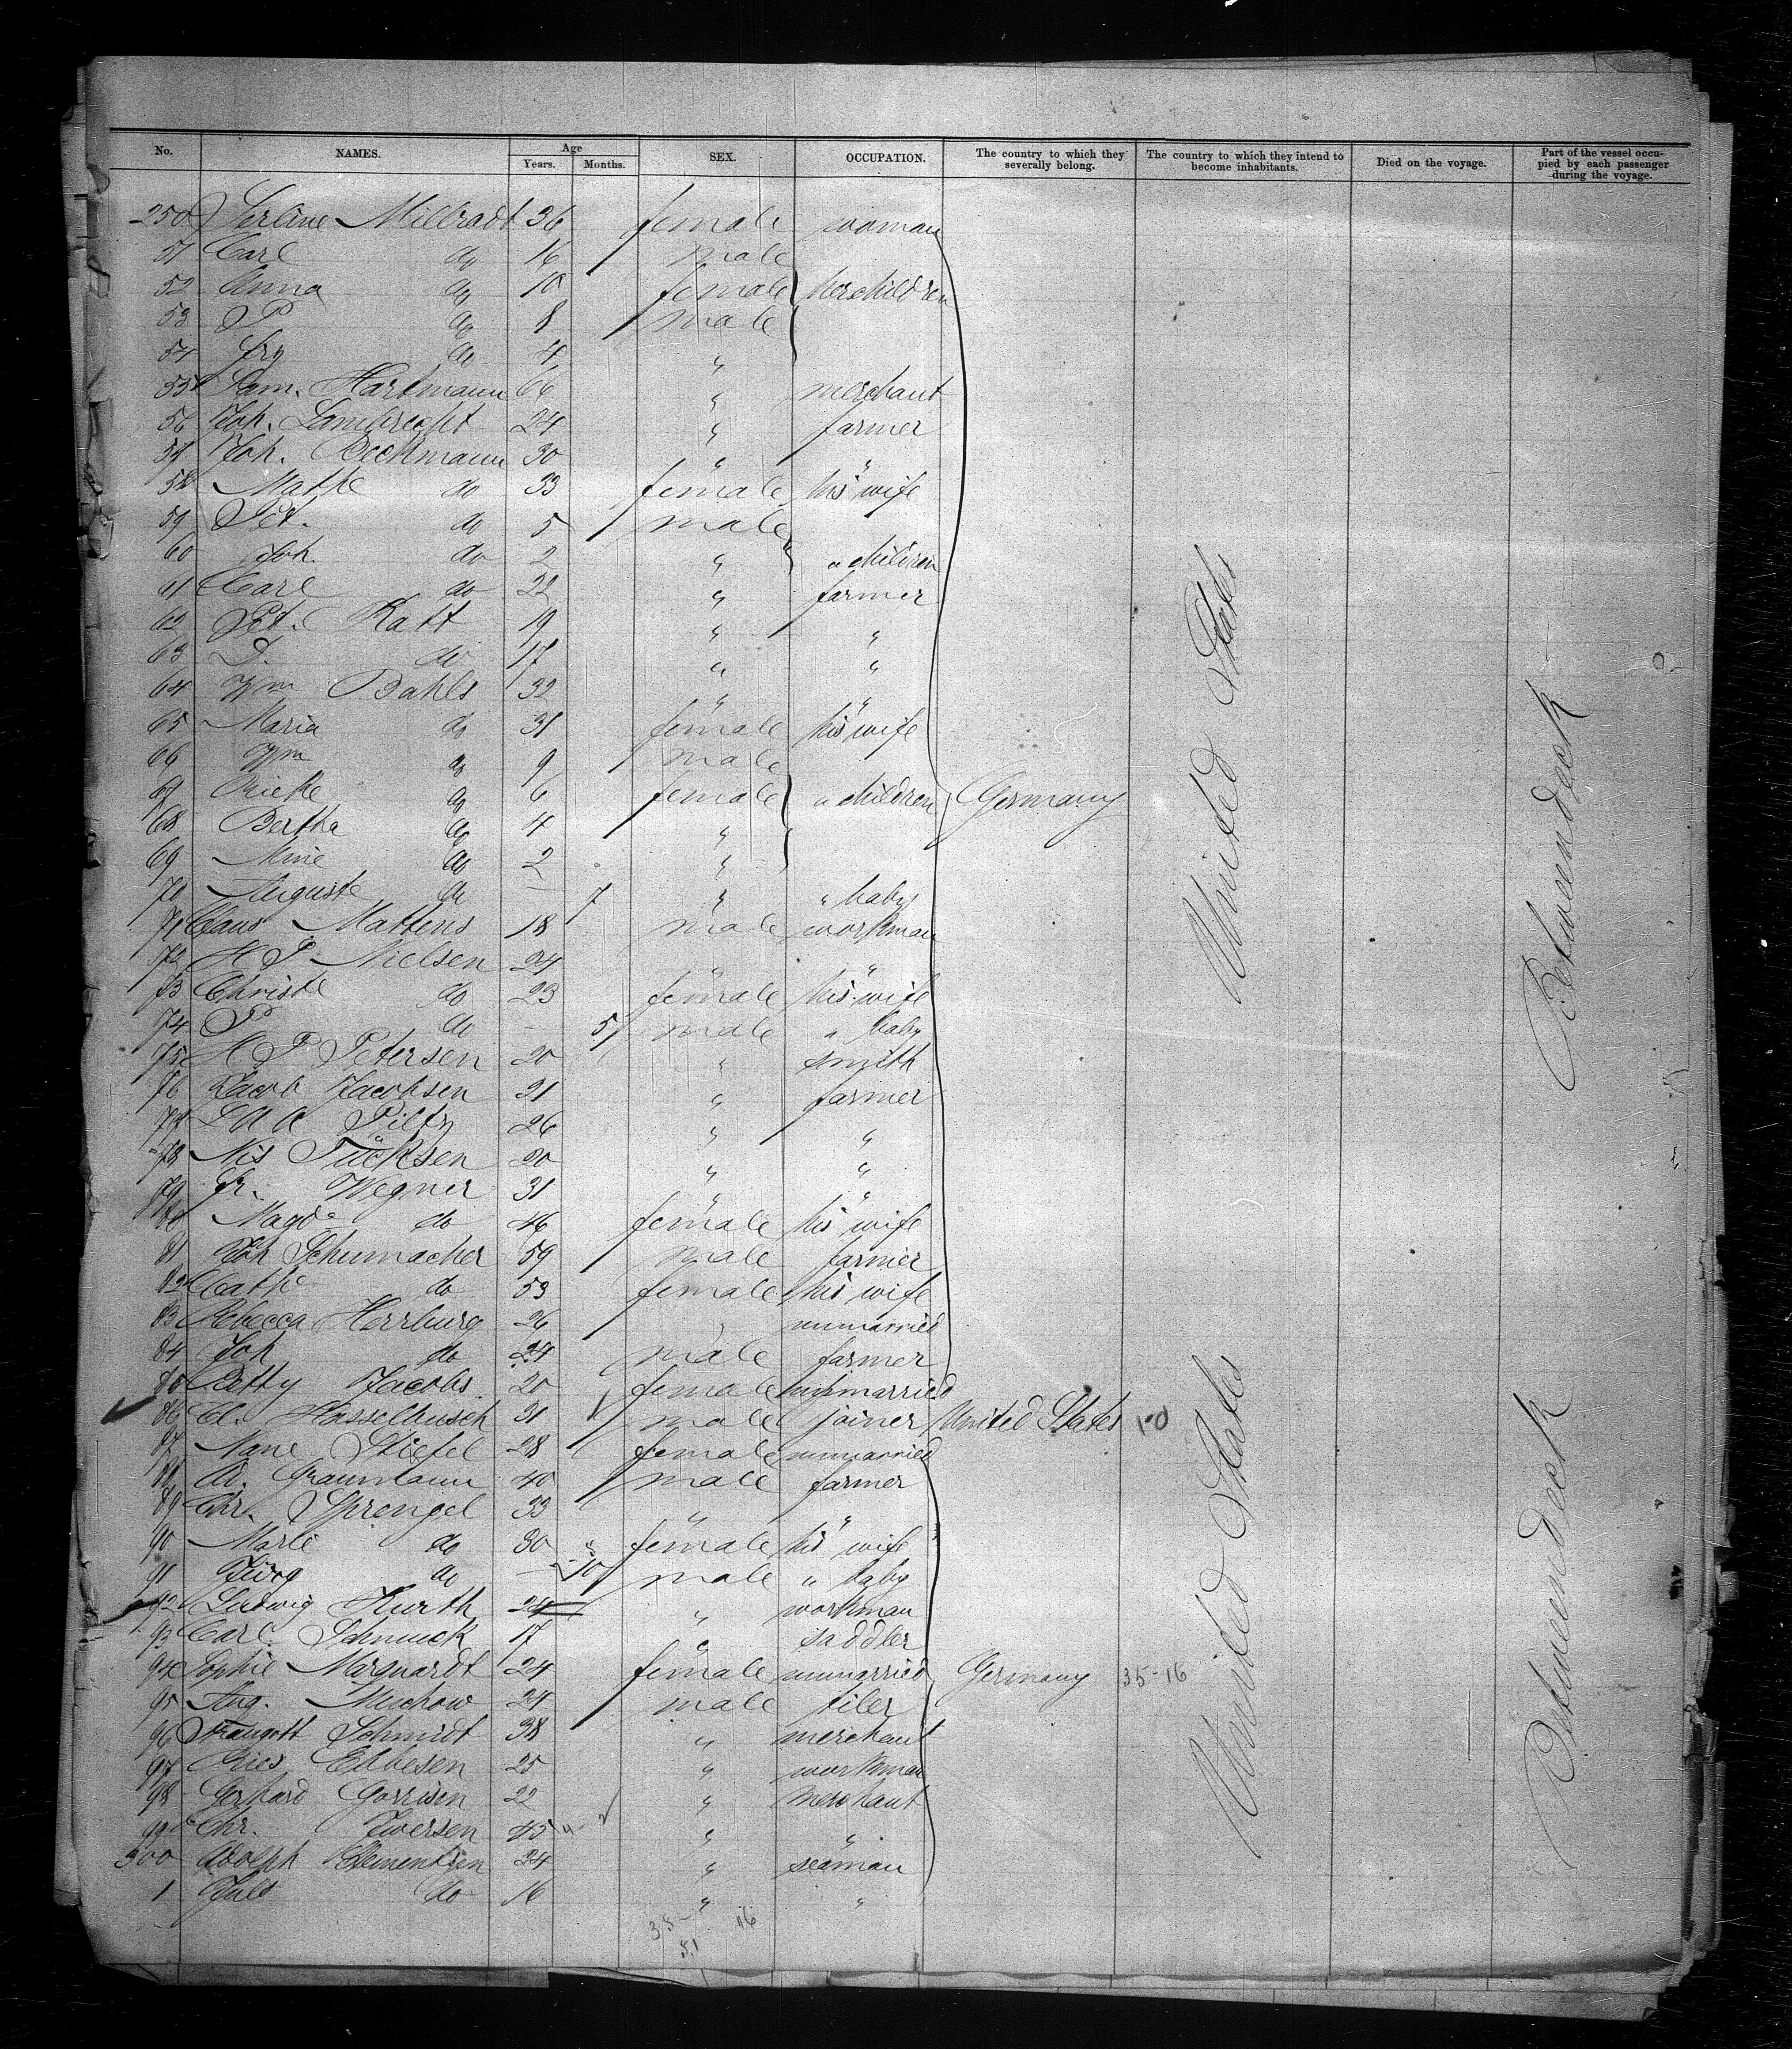 No. NAMES. Age Years. Months. SEX. OCCUPATION. The country to which they severally belong. The country to which they intend to become inhabitants. Died on the voyage. Part of the vessel occupied by each passenger during the voyage.
250 Millradt 36 female woman
51 Carl do 16 male
52 Anna do 10 female her children
53 P do 8 male
54 do 4 "
55 Sam. Hartmann 66 " merchant
56 Joh. Lambrecht 24 " farmer
57 Joh. Beckmann 30 " "
58 Mathe do 33 female his wife
59 Pet. do 5 male
60 Joh. do 2 " " children
61 Carl do 22 " farmer
62 Pet. Ratt 19 " "
63 D. do 17 " "
64 Wm Bahls 32 " "
65 Maria do 31 female his wife
66 Wm do 9 male
67 Rieke do 6 female " children Germany
68 Bertha do 4 "
69 Mine do 2 "
70 Auguste do — 7 " " baby
71 Claus Mattens 18 male workman
72 H P Nielsen 24 " "
73 Christe do 23 female his wife
74 P do — 5 male " baby
75 H P Petersen 20 " smith
76 Jacob Jacobsen 21 " farmer
77 Piltz 26 " "
78 Nis Fücksen 20 " "
79 Fr. Wegner 31 " "
80 Magde do 46 female his wife
81 Joh Schumacher 59 male farmer
82 Cathe do 53 female his wife
83 Rebecca Herrburg 26 " unmarried
84 Joh do 24 male farmer
85 Betty Jacobs. 20 female unmarried
86 Cl. Hasselbusch 31 male joiner United States
87 Nane Stiefel 28 female unmarried
88 Ad. Graumann 40 male farmer
89 Chr. Sprengel 33 " "
90 Marie do 30 " female his wife
91 Jürg do — 10 male " baby
92 Ludwig Kurth 24 " workman
93 Carl Schmuck 17 " saddler
94 Sophie Marquardt 24 female unmarried Germany 35-16
95 Aug. Muchow 24 male tiler
96 Traugott Schmidt 38 " merchant
97 Ebbesen 25 " workman
98 Gerhard Gorrisen 22 " merchant
99 Chr. Iversen 45 " "
300 Adolph Clementzen 24 " seaman
1 Juls do 16 " "
35- 16
51
United States
United States
Betweendeck
Betweendeck